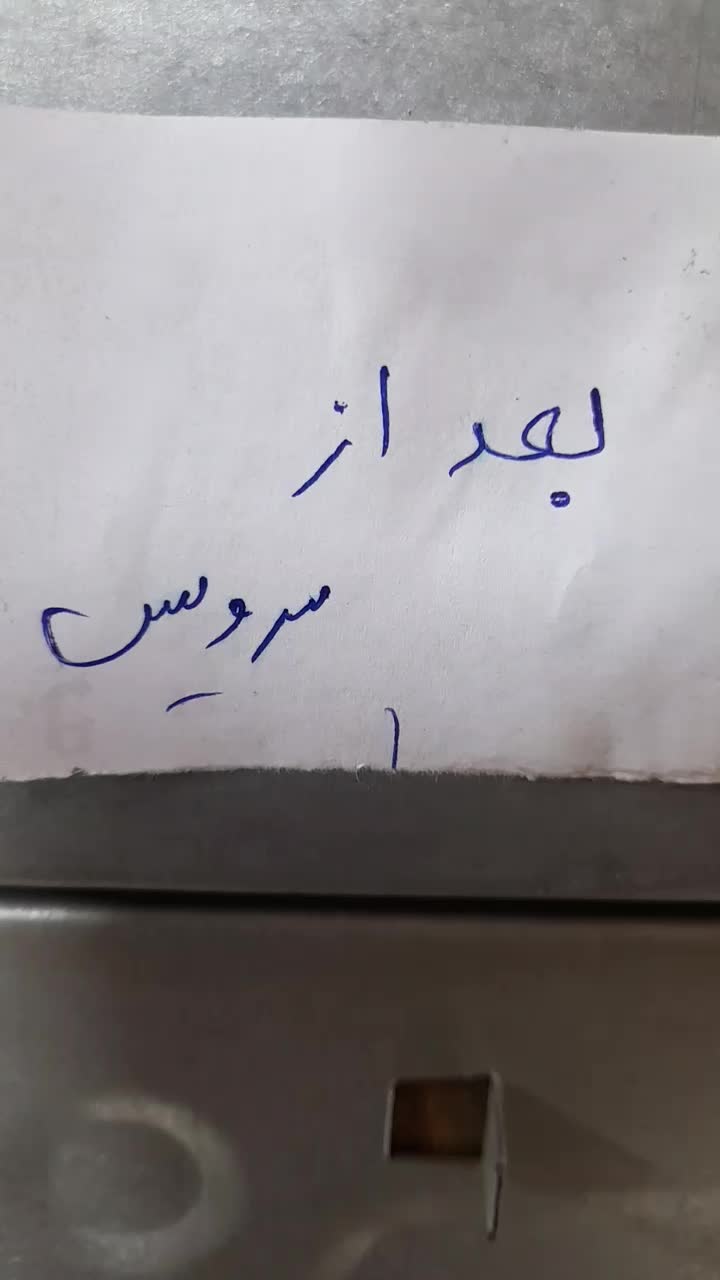 بعد از
سرویس
۱